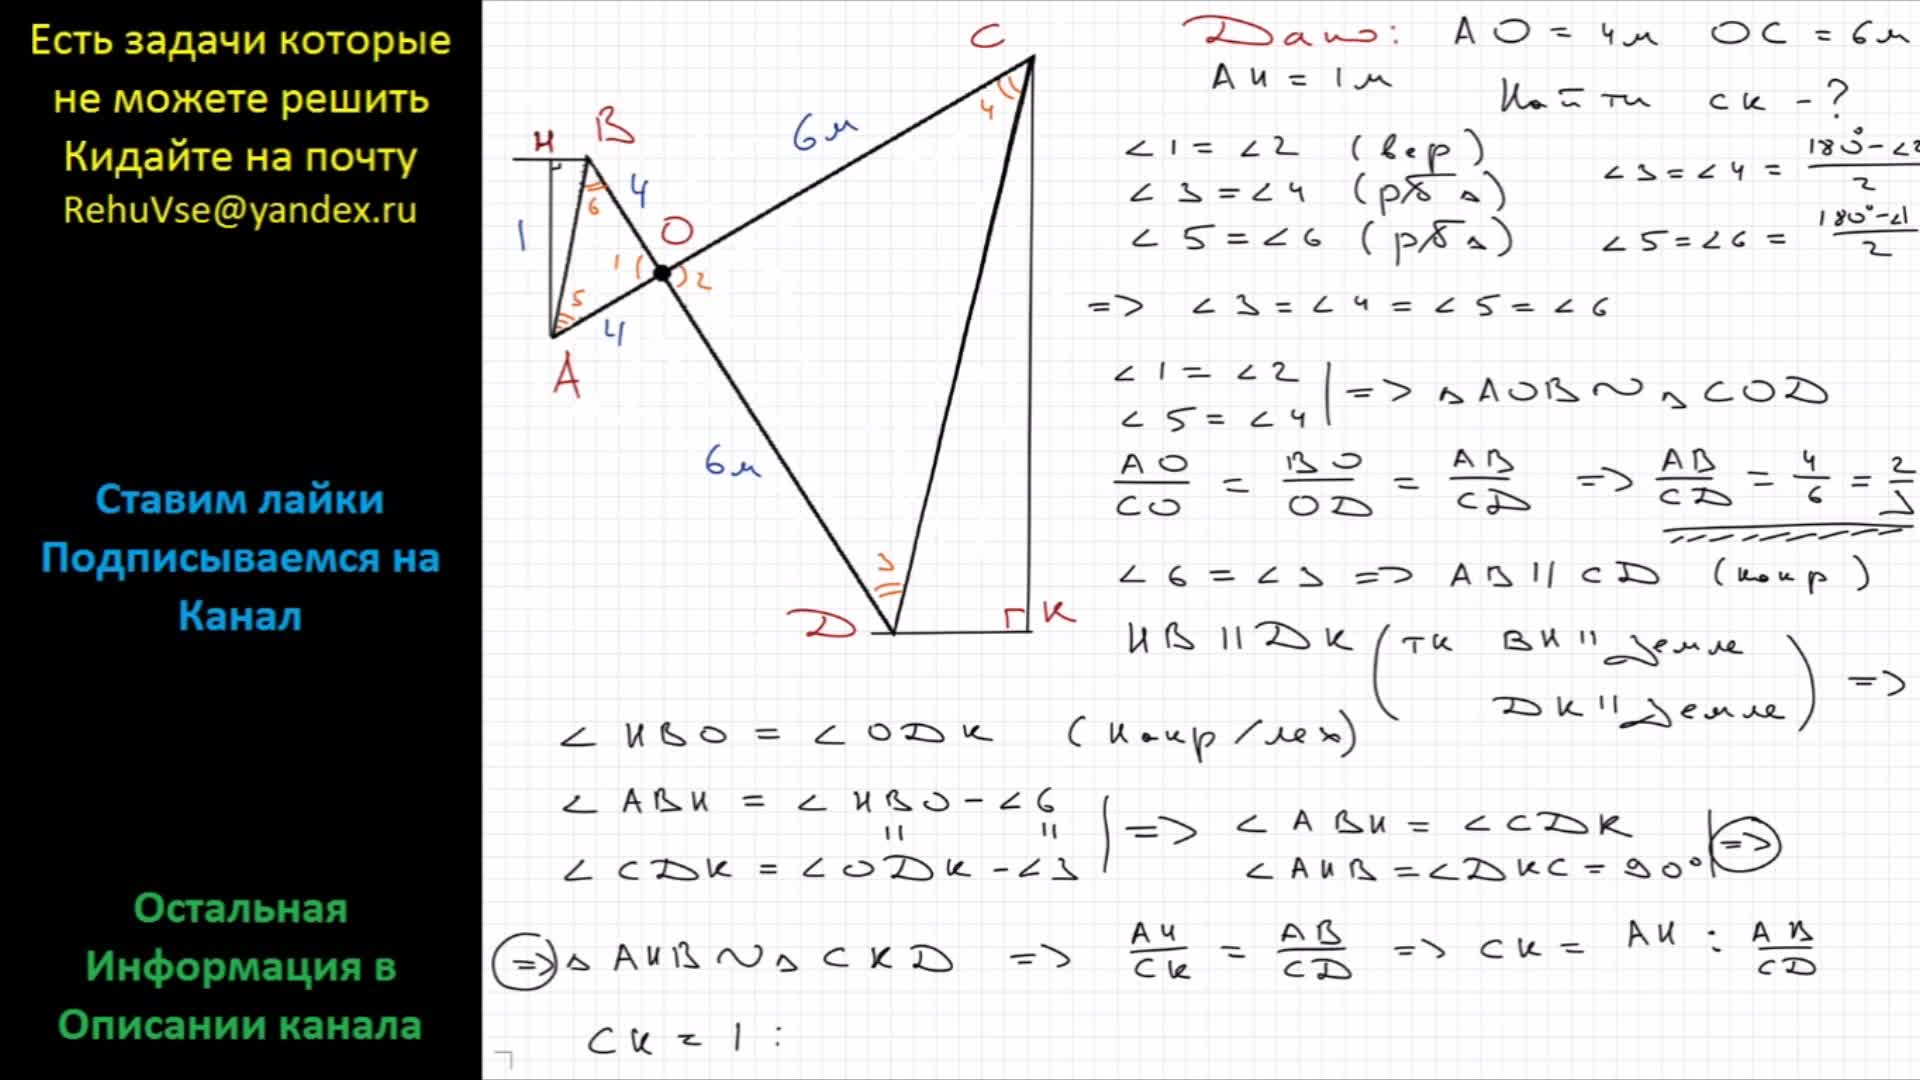 Есть задачи которые
не можете решить
Кидайте на почту
RehuVse@yandex.ru
Ставим лайки
Подписываемся на
Канал
Остальная
Информация в
Описании канала
C
B
H
6м
4
6
4
O
1
1
2
5
4
A
6м
3
D
K
Дано: AO = 4м OC = 6м
AH = 1м Найти CK - ?
∠1 = ∠2 (вер)
∠3 = ∠4 (р/б Δ)
∠5 = ∠6 (р/б Δ)
∠3 = ∠4 = 180° - ∠2 / 2
∠5 = ∠6 = 180° - ∠1 / 2
=> ∠3 = ∠4 = ∠5 = ∠6
∠1 = ∠2
∠5 = ∠4 | => Δ AOB ~ Δ COD
AO/CO = BO/OD = AB/CD => AB/CD = 4/6 = 2/3
∠6 = ∠3 => AB || CD (накр)
HB || DK (тк BH || Земле
DK || Земле) =>
∠HBO = ∠ODK (накр/леж)
∠ABH = ∠HBO - ∠6
|| ||
∠CDK = ∠ODK - ∠3
=> ∠ABH = ∠CDK
∠AHB = ∠DKC = 90° =>
=> Δ AHB ~ Δ CKD => AH/CK = AB/CD => CK = AH : AB/CD
CK = 1 :